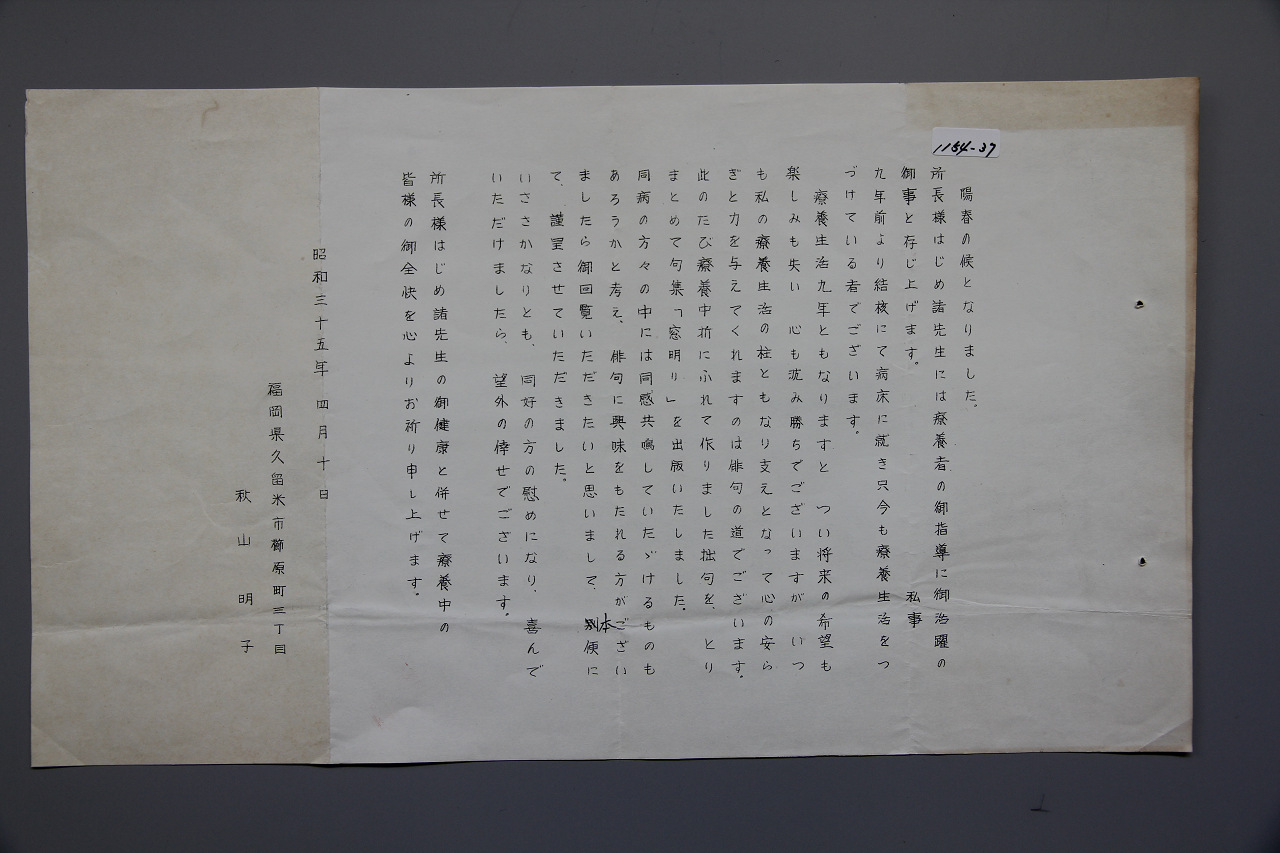 1154-37
陽春の候となりました。
所長様はじめ諸先生には療養者の御指導に御活躍の
御事と存じ上げます。　私事
九年前より結核にて病床に就き只今も療養生活をつ
づけている者でございます。
療養生活九年ともなりますと　つい将来の希望も
楽しみも失い　心も沈み勝ちでございますが　いつ
も私の療養生活の柱ともなり支えとなって心の安ら
ぎと力を与えてくれますのは俳句の道でございます。
此のたび療養中折にふれて作りました拙句を、とり
まとめて句集「窓明り」を出版いたしました。
同病の方々の中には同感共鳴していたゞけるものも
あろうかと考え、俳句に興味をもたれる方がござい
ましたら御回覧いただきたいと思いまして、本便に
て、謹呈させていただきました。
いささかなりとも、同好の方の慰めになり、喜んで
いただけましたら、望外の倖せでございます。
所長様はじめ諸先生の御健康と併せて療養中の
皆様の御全快を心よりお祈り申し上げます。
昭和三十五年　四月十日
福岡県久留米市櫛原町三丁目
秋山明子